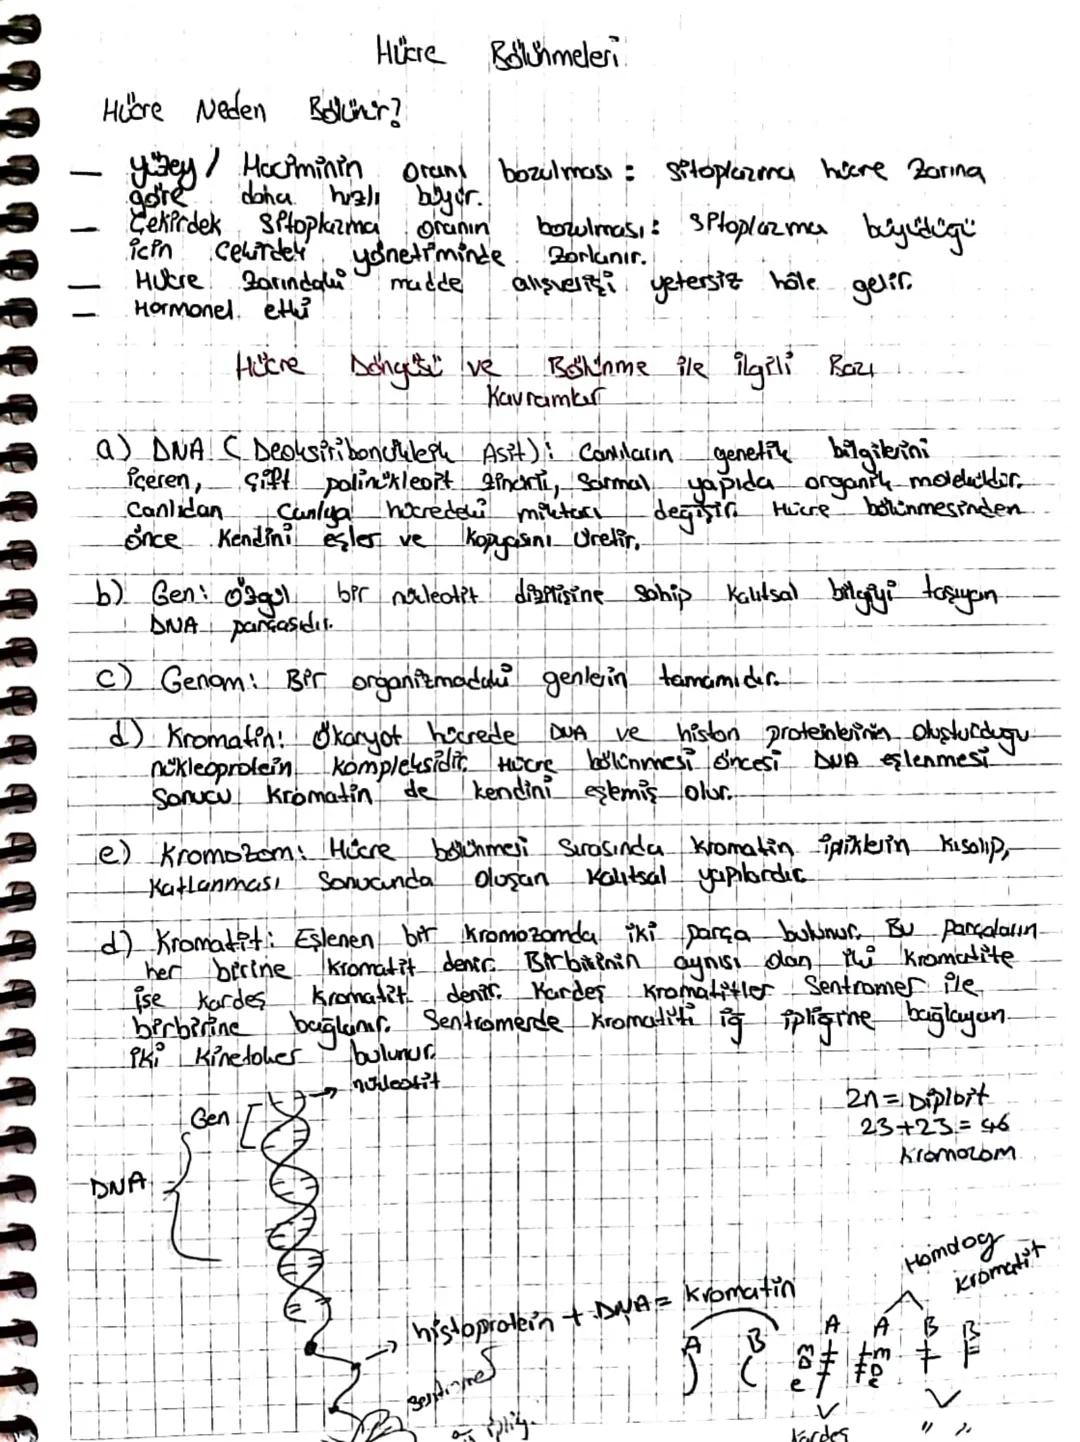 Hücre Bölünmeleri
Hücre Neden Bölünür?
— Yüzey / Hacminin oranı bozulması: Sitoplazma hücre zarına
göre daha hızlı büyür.
— Çekirdek Sitoplazma oranın bozulması: Sitoplazma büyüdüğü
için çekirdek yönetiminde zorlanır.
— Hücre zarındaki madde alışverişi yetersiz hâle gelir.
— Hormonel etki
Hücre Döngüsü ve Bölünme ile ilgili Bazı
Kavramlar
a) DNA (Deoksiribonükleik Asit): Canlıların genetik bilgilerini
içeren, çift polinükleotit zincirli, sarmal yapıda organik moleküldür.
Canlıdan canlıya hücredeki miktarı değişir. Hücre bölünmesinden
önce kendini eşler ve kopyasını üretir.
b) Gen: Özgül bir nükleotit dizilisine sahip kalıtsal bilgiyi taşıyan
DNA parçasıdır.
c) Genom: Bir organizmadaki genlerin tamamıdır.
d) Kromatin: Ökaryot hücrede DNA ve histon proteinlerinin oluşturduğu
nükleoprotein kompleksidir. Hücre bölünmesi öncesi DNA eşlenmesi
sonucu kromatin de kendini eşlemiş olur.
e) Kromozom: Hücre bölünmesi sırasında kromatin ipliklerin kısalıp,
katlanması sonucunda oluşan kalıtsal yapılardır.
d) Kromatit: Eşlenen bir kromozomda iki parça bulunur. Bu parçaların
her birine kromatit denir. Birbirinin aynısı olan iki kromatite
ise kardeş kromatit denir. Kardeş kromatitler Sentromer ile
birbirine bağlanır. Sentromerde kromatiti iğ ipliğine bağlayan
iki kinetokor bulunur.
→ nükleotit
Gen
DNA
2n = Diploit
23+23 = 46
Kromozom
Homolog
kromatit
→ histoprotein + DNA = Kromatin
A B
A A B B
m
D
e
m
D
e
sentromer
ipliği
kardeş
" "